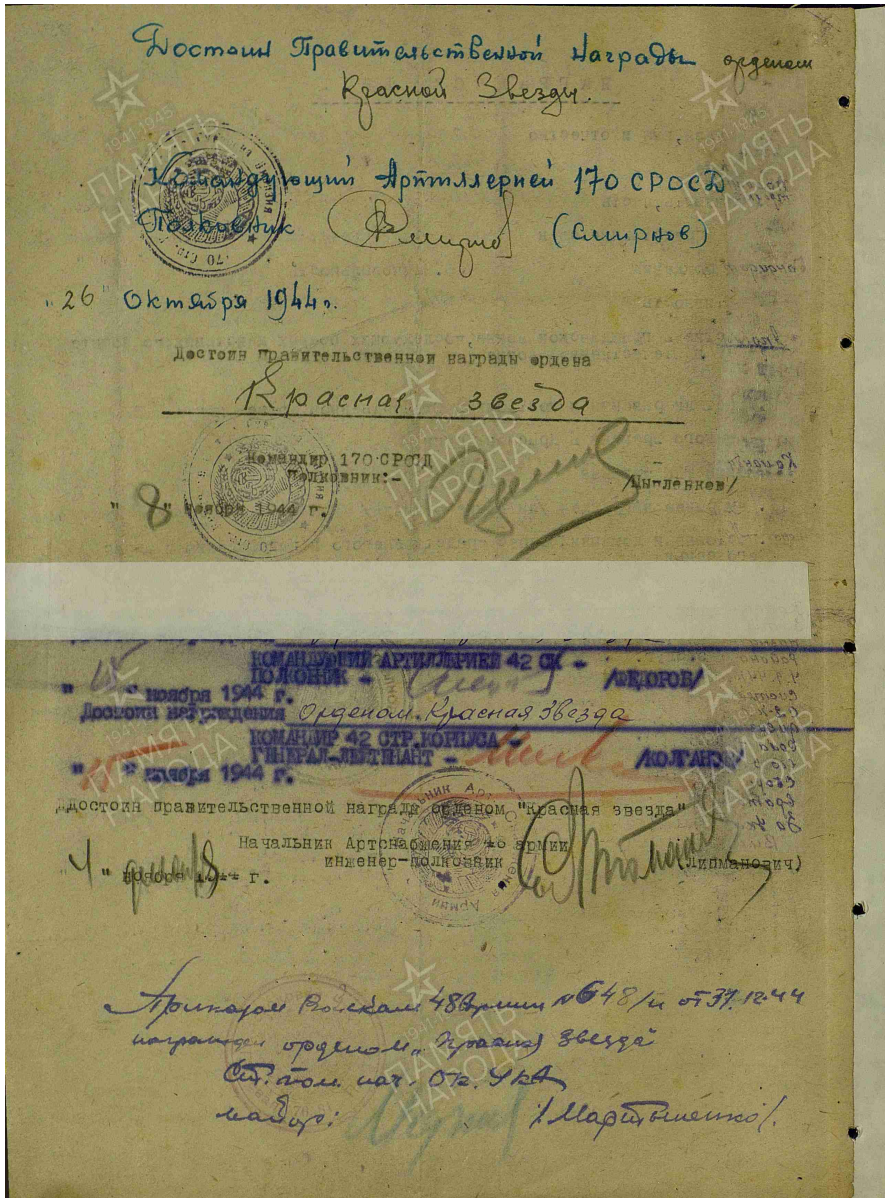 Достоин Правительственной награды орденом
Красной Звезды.
Командующий Артиллерией 170 СРОСД
Полковник (Смирнов)
"26" Октября 1944г.
Достоин правительственной награды ордена
Красная звезда
Командир 170 СРОСД
Полковник:- /Цыпленков/
"8" ноября 1944 г.
КОМАНДУЮЩИЙ АРТИЛЛЕРИЕЙ 42 СК -
ПОЛКОВНИК - /ФЕДОРОВ/
" " ноября 1944 г.
Достоин награждения Орденом Красная Звезда
КОМАНДИР 42 СТР.КОРПУСА -
ГЕНЕРАЛ-ЛЕЙТЕНАНТ - /КОЛГАНОВ/
" " ноября 1944 г.
Достоин правительственной награды орденом "Красная звезда"
Начальник Артснабжения 48 армии
инженер-полковник (Липманович)
"4" ноября 1944 г.
Приказом Войскам 48 Армии № 648/н от 31.12.44
награжден орденом "Красная Звезда"
Ст. пом. нач. ОК. 48А
майор: /Мартышенко/.
ПАМЯТЬ НАРОДА
1941-1945